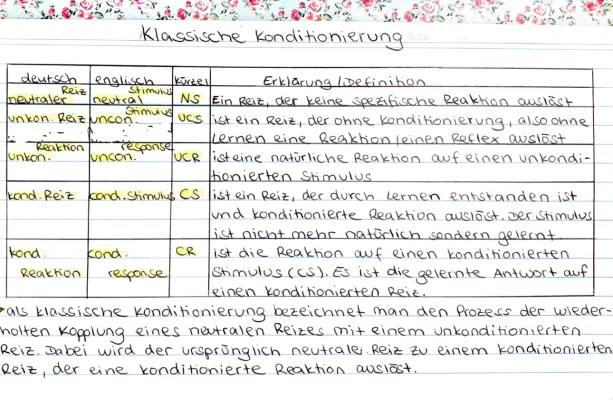 Klassische Konditionierung
deutsch englisch kürzel Erklärung/Definition
neutraler Reiz neutral Stimulus NS Ein Reiz, der keine spezifische Reaktion auslöst
unkon. Reiz uncon. Stimulus UCS ist ein Reiz, der ohne Konditionierung, also ohne
Lernen eine Reaktion/einen Reflex auslöst
unkon. Reaktion uncon. response UCR ist eine natürliche Reaktion auf einen unkondi-
tionierten Stimulus
kond. Reiz cond. Stimulus CS ist ein Reiz, der durch Lernen entstanden ist
und konditionierte Reaktion auslöst. Der Stimulus
ist nicht mehr natürlich sondern gelernt
kond. Reaktion cond. response CR ist die Reaktion auf einen konditionierten
Stimulus (CS). Es ist die gelernte Antwort auf
einen konditionierten Reiz.
als klassische Konditionierung bezeichnet man den Prozess der wieder-
holten Kopplung eines neutralen Reizes mit einem unkonditionierten
Reiz. Dabei wird der ursprünglich neutrale Reiz zu einem konditionierten
Reiz, der eine konditionierte Reaktion auslöst.